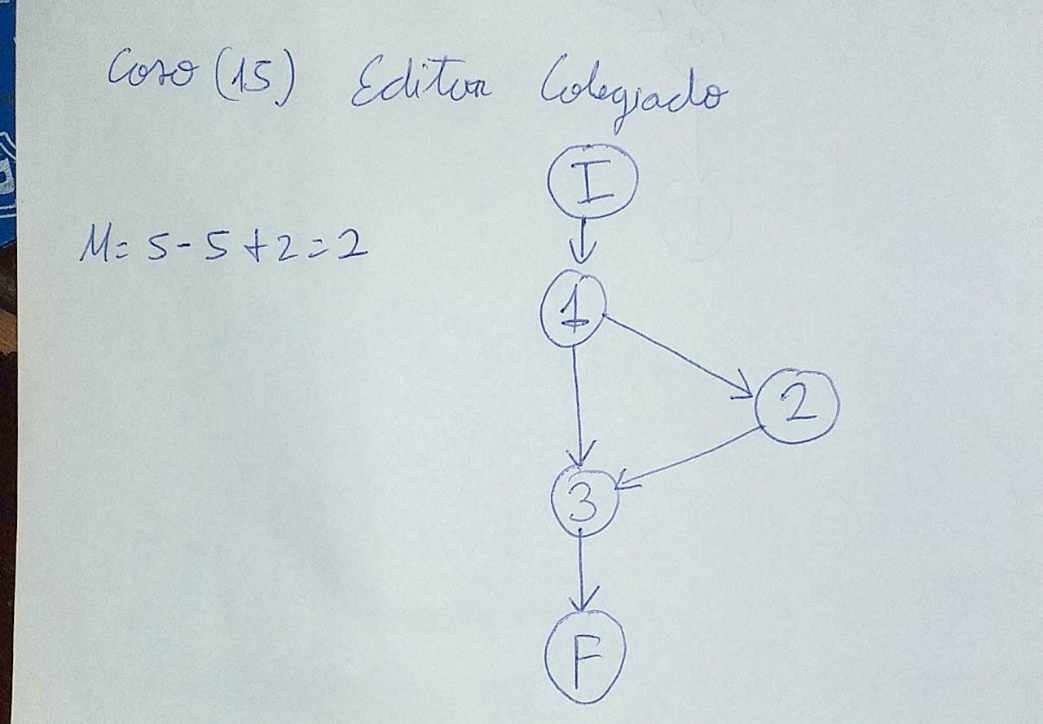 Caso (15) Editar Colegiado
I
M= 5-5+2=2
1
2
3
F